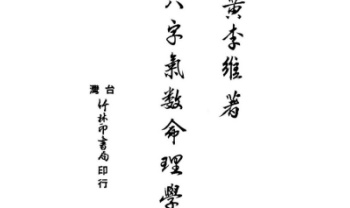 黃李維著
八字氣数命理學
台灣
竹林印書局印行